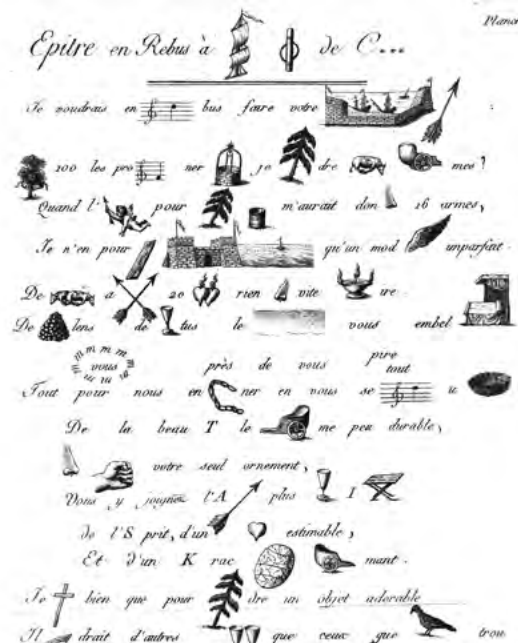 Planc
Epître en Rebus à de C...
Je voudrais en bus faire votre :
100 les pro ner je dre mes ?
Quand l' pour m'aurait don 16 armes,
Je n'en pour qu'un mod imparfait.
De a 20 rien vite ire.
De lens de tus le vous embel
m m m m m vous
près de vous pire tout
Tout pour nous en ner en vous se u
De la beau T le me peu durable,
votre seul ornement,
Vous y joignez l'A plus I
de l'S prit, d'un estimable,
Et d'un K rac mant.
Je bien que pour dre un objet adorable
Il drait d'autres que ceux que trou